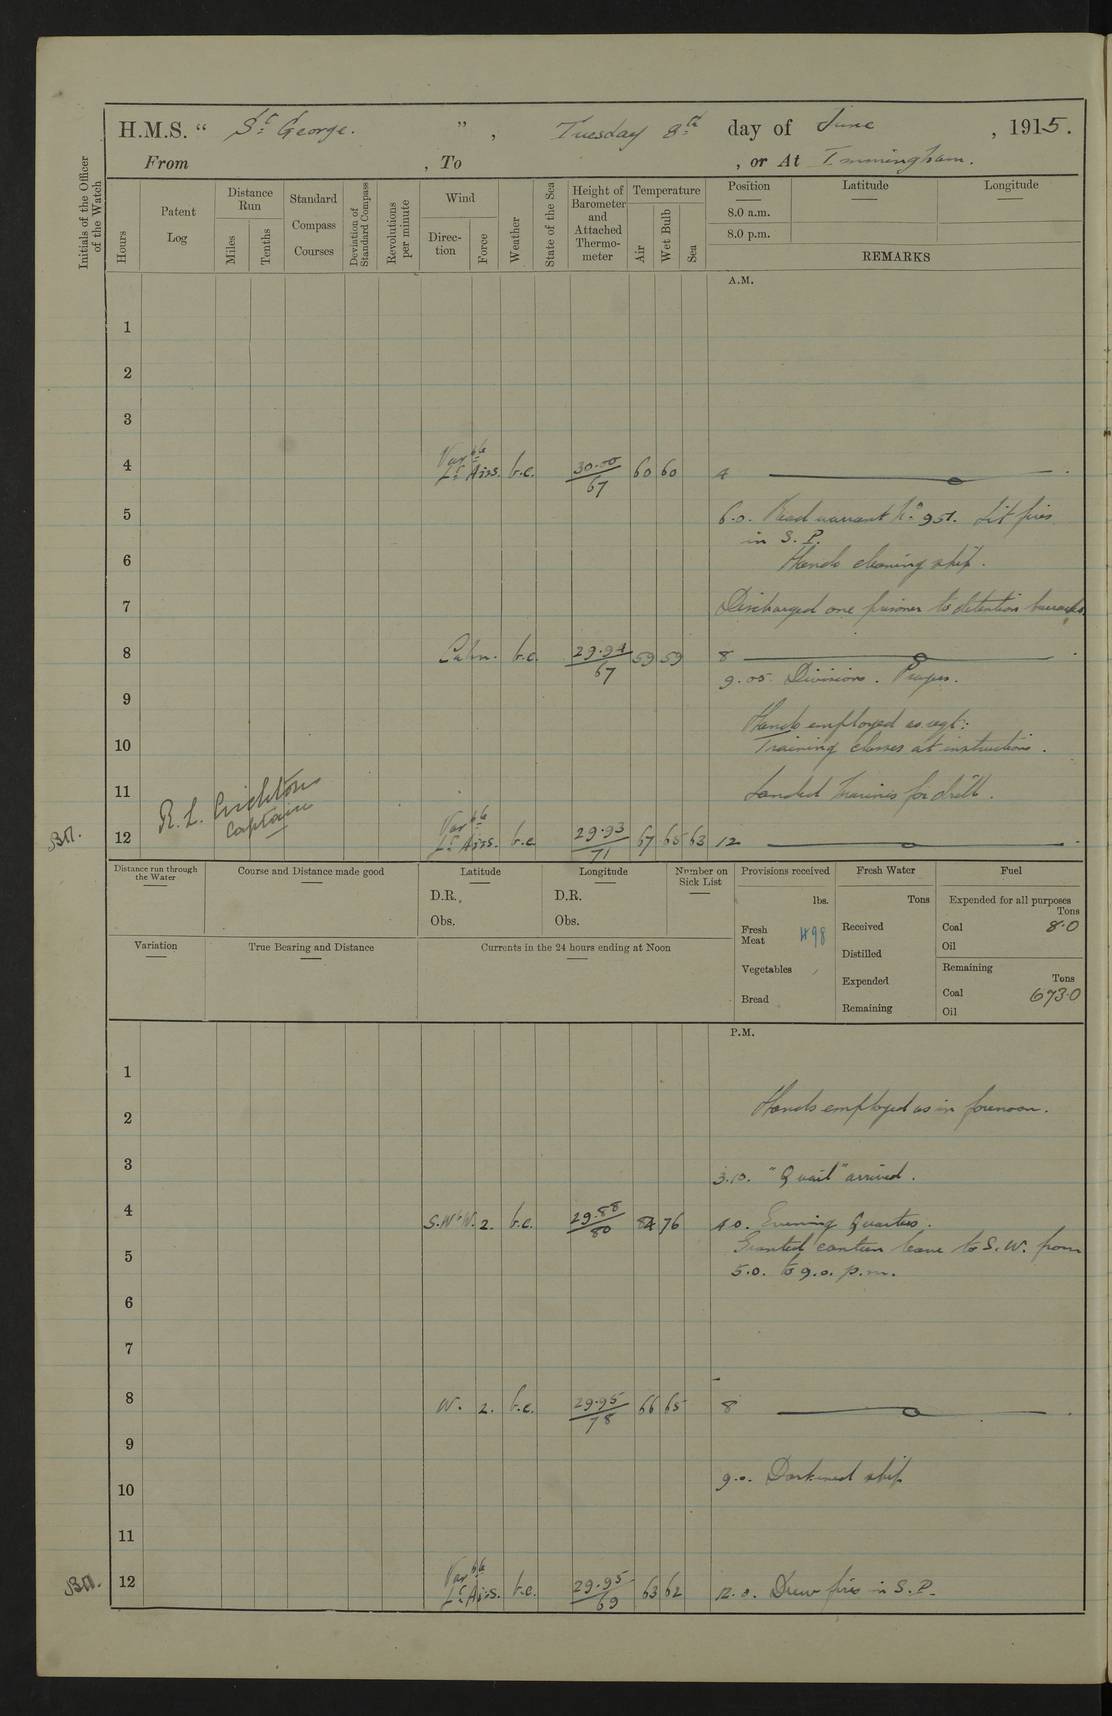 H.M.S. “ St George. ” , Tuesday 8th day of June , 1915.
From , To , or At Immingham.
Initials of the Officer of the Watch
Hours
Patent Log
Distance Run
Miles
Tenths
Standard Compass Courses
Deviation of Standard Compass
Revolutions per minute
Wind
Direc-tion
Force
Weather
State of the Sea
Height of Barometer and Attached Thermo-meter
Temperature
Air
Wet Bulb
Sea
Position Latitude Longitude
8.0 a.m.
8.0 p.m.
REMARKS
A.M.
1
2
3
4 Varble Lt Airs. b.c. 30.00/67 60 60 4
5 6.0. Read warrant No 951. Lit fires
in S. P.
6 Hands cleaning ship.
7 Discharged one prisoner to detention barracks.
8 Calm. b.c. 29.94/67 59 59 8
9.05. Divisions. Prayers.
9
Hands employed as reqt:
10 Training classes at instructions.
11 Landed Marines for drill.
R. L. Crichton
Captain
12 Varble Lt Airs. b.c. 29.93/71 67 65 63 12
Distance run through the Water
Course and Distance made good
Latitude
D.R.
Obs.
Longitude
D.R.
Obs.
Number on Sick List
Provisions received
lbs.
Fresh Meat 498
Vegetables
Bread
Fresh Water
Tons
Received
Distilled
Expended
Remaining
Fuel
Expended for all purposes
Tons
Coal 8.0
Oil
Remaining
Tons
Coal 673.0
Oil
Variation
True Bearing and Distance
Currents in the 24 hours ending at Noon
P.M.
1
2 Hands employed as in forenoon.
3 3.10. "Quail" arrived.
4 S.W.b W. 2. b.c. 29.88/80 84 76 4.0. Evening Quarters.
Granted canteen leave to S. W. from
5 5.0. to 9.0. p.m.
6
7
8 W. 2. b.c. 29.95/78 66 65 8
9
10 9.0. Darkened ship
11
12 Varble Lt Airs. b.c. 29.95/69 63 62 12.0. Drew fires in S. P.